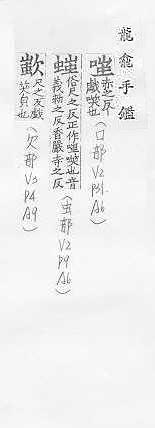 龍龕手鑑
赤之反
戲笑也
(口部 V2 P51. A6)
俗尺之反正作嗤笑也音
義新之反香嚴赤之反
(虫部 V2 P9 A6)
尺之反戲
笑皃也
(欠部 V3 P4 A9)